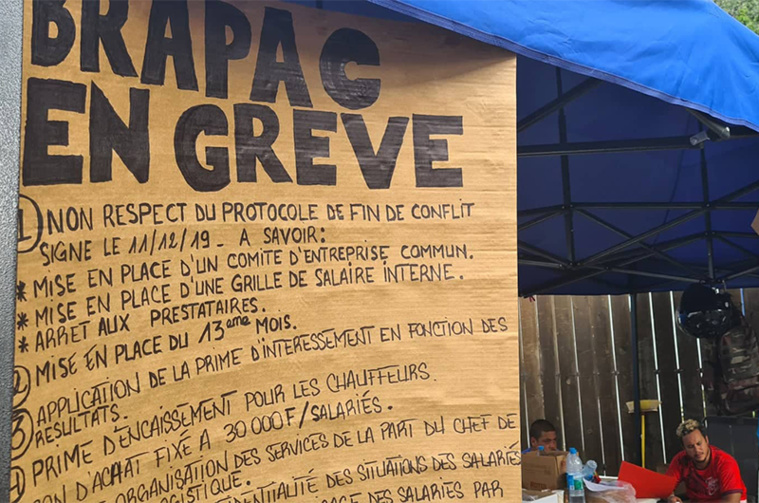 BRAPAC
EN GREVE
1 NON RESPECT DU PROTOCOLE DE FIN DE CONFLIT
SIGNE LE 11/12/19 - A SAVOIR:
* MISE EN PLACE D'UN COMITE D'ENTREPRISE COMMUN.
* MISE EN PLACE D'UNE GRILLE DE SALAIRE INTERNE.
* ARRET AUX PRESTATAIRES.
2 MISE EN PLACE DU 13eme MOIS.
3 APPLICATION DE LA PRIME D'INTERESSEMENT EN FONCTION DES
RESULTATS.
PRIME D'ENCAISSEMENT POUR LES CHAUFFEURS.
ON D'ACHAT FIXÉ A 30 000 F/SALARIÉS.
ORGANISATION DES SERVICES DE LA PART DU CHEF DE
DES SITUATIONS DES SALARIÉS
DES SALARIÉS PAR